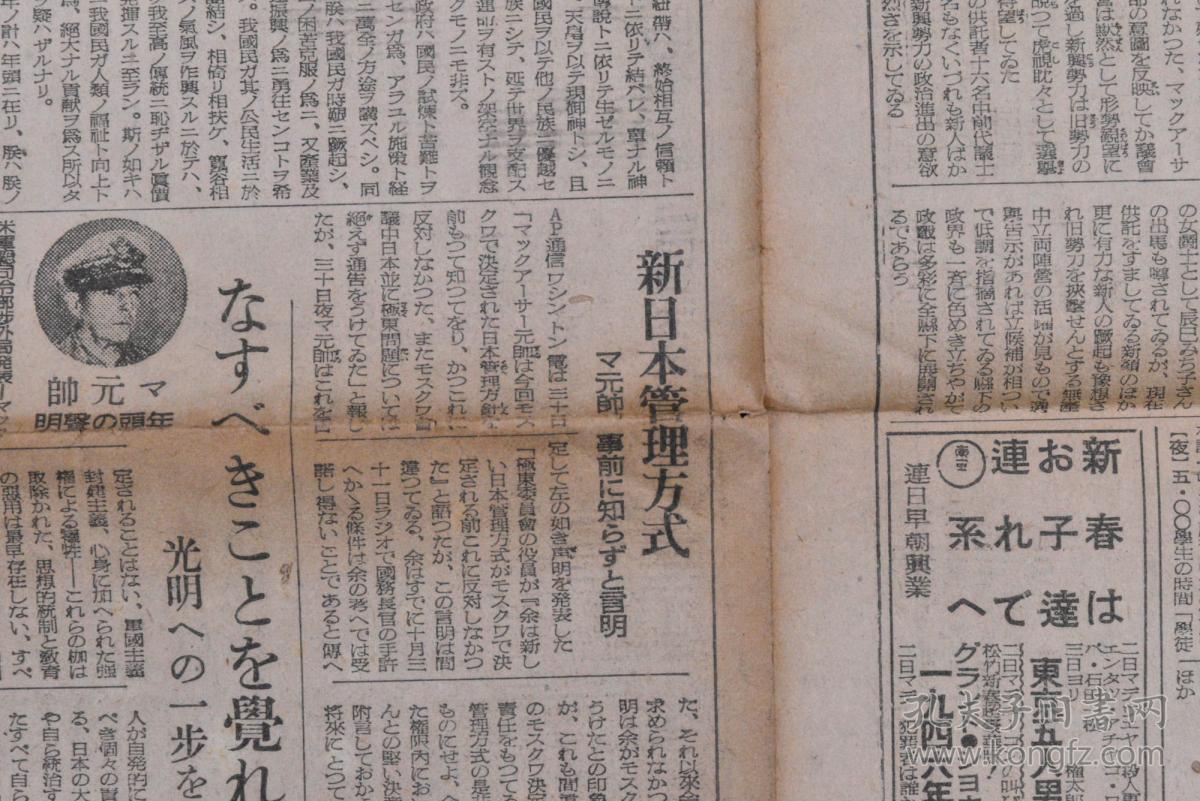 紐帶ハ、終始相互ノ信頼ト
ニ依リテ結バレ、單ナル神
傳説トニ依リテ生ゼルモノニ
天皇ヲ以テ現御神トシ、且
國民ヲ以テ他ノ民族ニ優越セ
族ニシテ、延テ世界ヲ支配ス
運命ヲ有ストノ架空ナル觀念
クモノニモ非ズ。
政府ハ國民ノ試煉ト苦難トヲ
センガ爲、アラユル施策ト經
ニ萬全ノ方途ヲ講ズベシ。同
朕ハ我國民ガ時艱ニ蹶起シ、
ノ困苦克服ノ爲ニ、又産業及
振興ノ爲ニ勇往センコトヲ希
。我國民ガ其ノ公民生活ニ於
結シ、相倚リ相扶ケ、寛容相
ノ氣風ヲ作興スルニ於テハ、
我至高ノ傳統ニ恥ヂザル眞價
發揮スルニ至ラン。斯ノ如キハ
ニ我國民ガ人類ノ福祉ト向上ト
爲、絶大ナル貢獻ヲ爲ス所以タ
疑ハザルナリ。
年ノ計ハ年頭ニ在リ、朕ハ朕ノ
れなかつた、マックアーサ
部の意圖を反映してか議會
營は默然として形勢觀望に
を過し新興勢力は旧勢力の
睨つて虎視眈々として選擧
待望してゐた
の供託者十六名中前代議士
名もなくいづれも新人ばか
新興勢力の政治進出の意欲
烈さを示してゐる
の女鬪士として辰巳あち子さん
の出馬も噂されてゐるが、現在
供託をすましてゐる新顔のほか
更に有力な新人の蹶起も豫想さ
れ旧勢力を挾撃せんとする無産
中立兩陣營の活躍が見もので選
擧告示があれば立候補が相つい
で低調を指摘されてゐる縣下の
政界も一斉に色めき立ちやがて
政戰は多彩に全縣下に展開され
るであらう
新日本管理方式
マ元帥、事前に知らずと言明
AP通信ワシントン電は三十日
「マックアーサー元帥は今回モス
クワで決定された日本管理方針を
前もつて知つてをり、かつこれに
反対しなかつた、またモスクワ會
議中日本並に極東問題については
絶えず通告をうけてゐた」と報じ
たが、三十日夜マ元帥はこれを否
定して左の如き声明を発表した
「極東委員會の役員が『余は新し
い日本管理方式がモスクワで決
定される前これに反対しなかつ
た』と語つたが、この言明は間
違つてゐる、余はすでに十月三
十一日ラジオで國務長官の手許
へかゝる條件は余の考へでは受
諾し得ない、ことであると傳へ
た、それ以來余
求められなかつ
明は余がモスク
うけたとの印象
が、これも間違
のモスクワ決定
責任をもつてゐ
管理方式の是非
ものにせよ、余
た權限内におい
んとの堅い決意
附言しておかね
將來にとつて
マ元帥
年頭の聲明
米軍總司令部渉外局発表＝マッ
なすべきことを覺れ
光明への一步を
定されることはない、軍國主義
封建主義、心身に加へられた強
權による犧牲――これらの枷は
取除かれた、思想的統制と教育
の惡用は最早存在しない、すべ
人が自発的に
べき個々の責
る、日本の大
や自ら統治す
たすべて自ら
新春は
お子達
連れで
系へ
連日早朝興業
【夜一五・〇〇學生の時間「學徒
東京五人男
一九四六年
孔夫子旧书网
www.kongfz.com